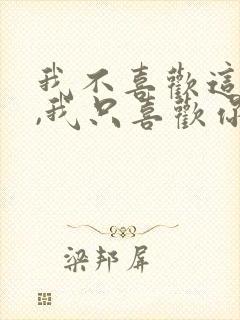 我不喜歡這
,我只喜歡你
梁邦屏